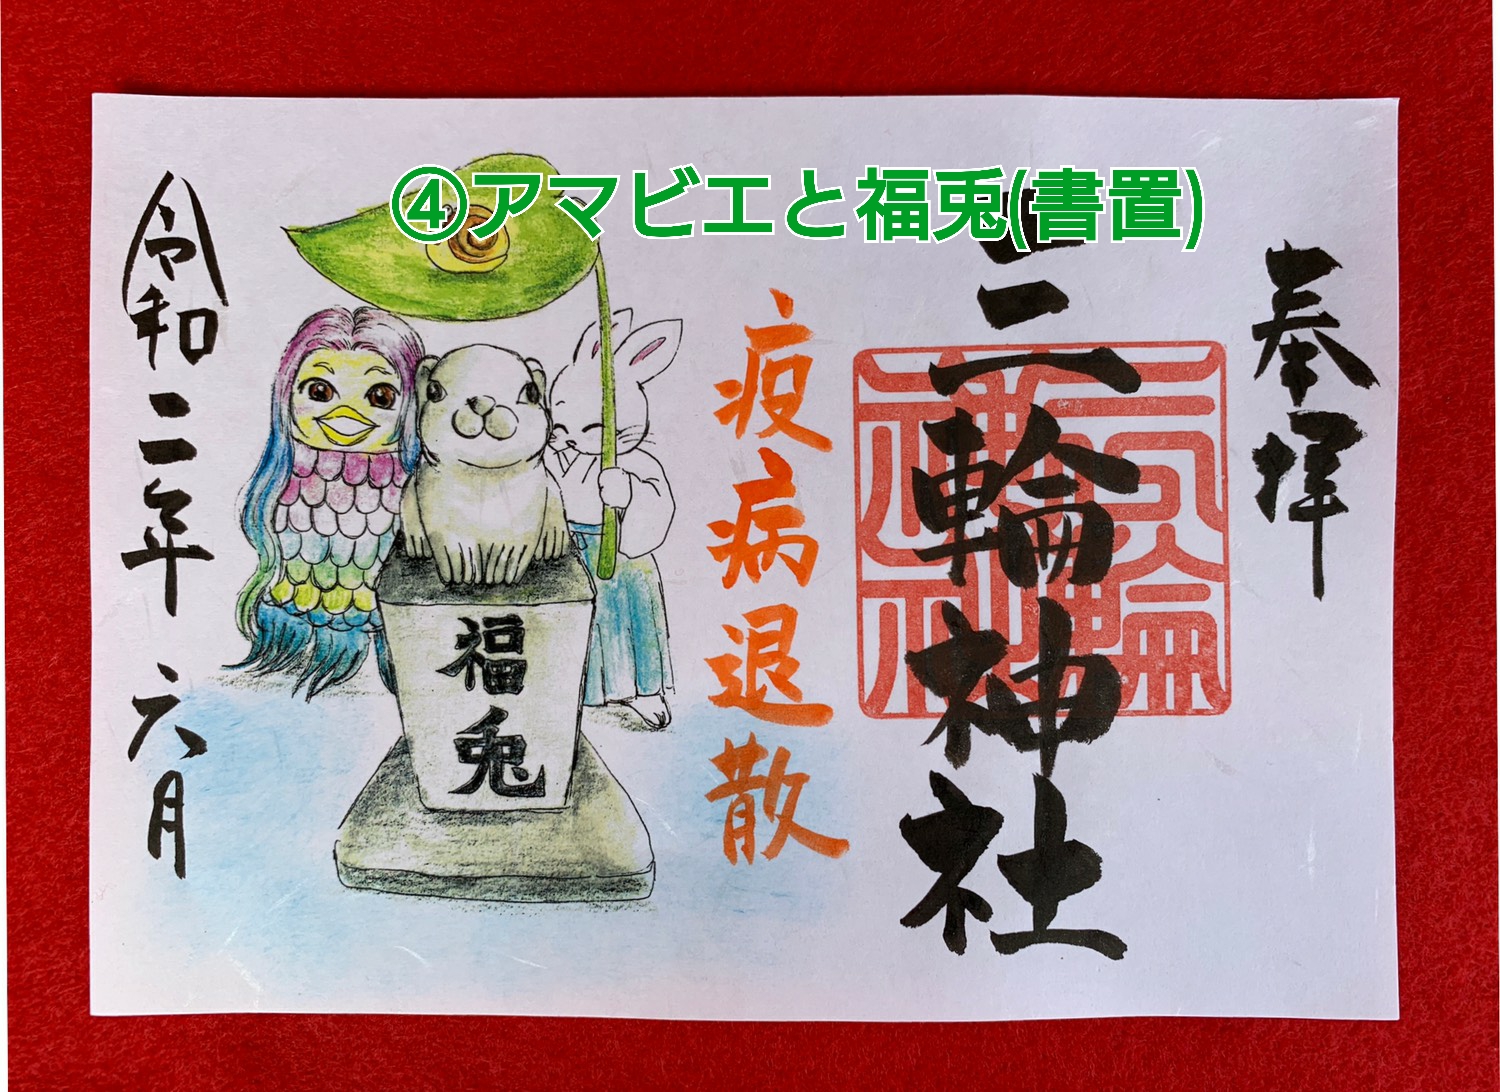 ④アマビエと福兎(書置)
奉拝
三輪神社
三輪神社
疫病退散
福兎
令和二年 六月